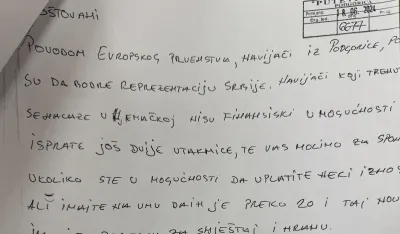 POŠTOVANI
PUTEVI
PODGORICA
18 06 2024
6677
POVODOM EVROPSKOG PRVENSTVA, NAVIJAČI IZ PODGORICE, PO
SU DA BODRE REPREZENTACIJU SRBIJE. NAVIJAČI KOJI TRENU
SE NALAZE U NJEMAČKOJ NISU FINANSISKI U MOGUĆNOSTI
ISPRATE JOŠ DVIJE UTAKMICE, TE VAS MOLIMO ZA SPON
UKOLIKO STE U MOGUĆNOSTI DA UPLATITE NEKI IZNOS
ALI IMAJTE NA UMU DA IH JE PREKO 20 I TAJ NOV
ZA SMJEŠTAJ I HRANU.